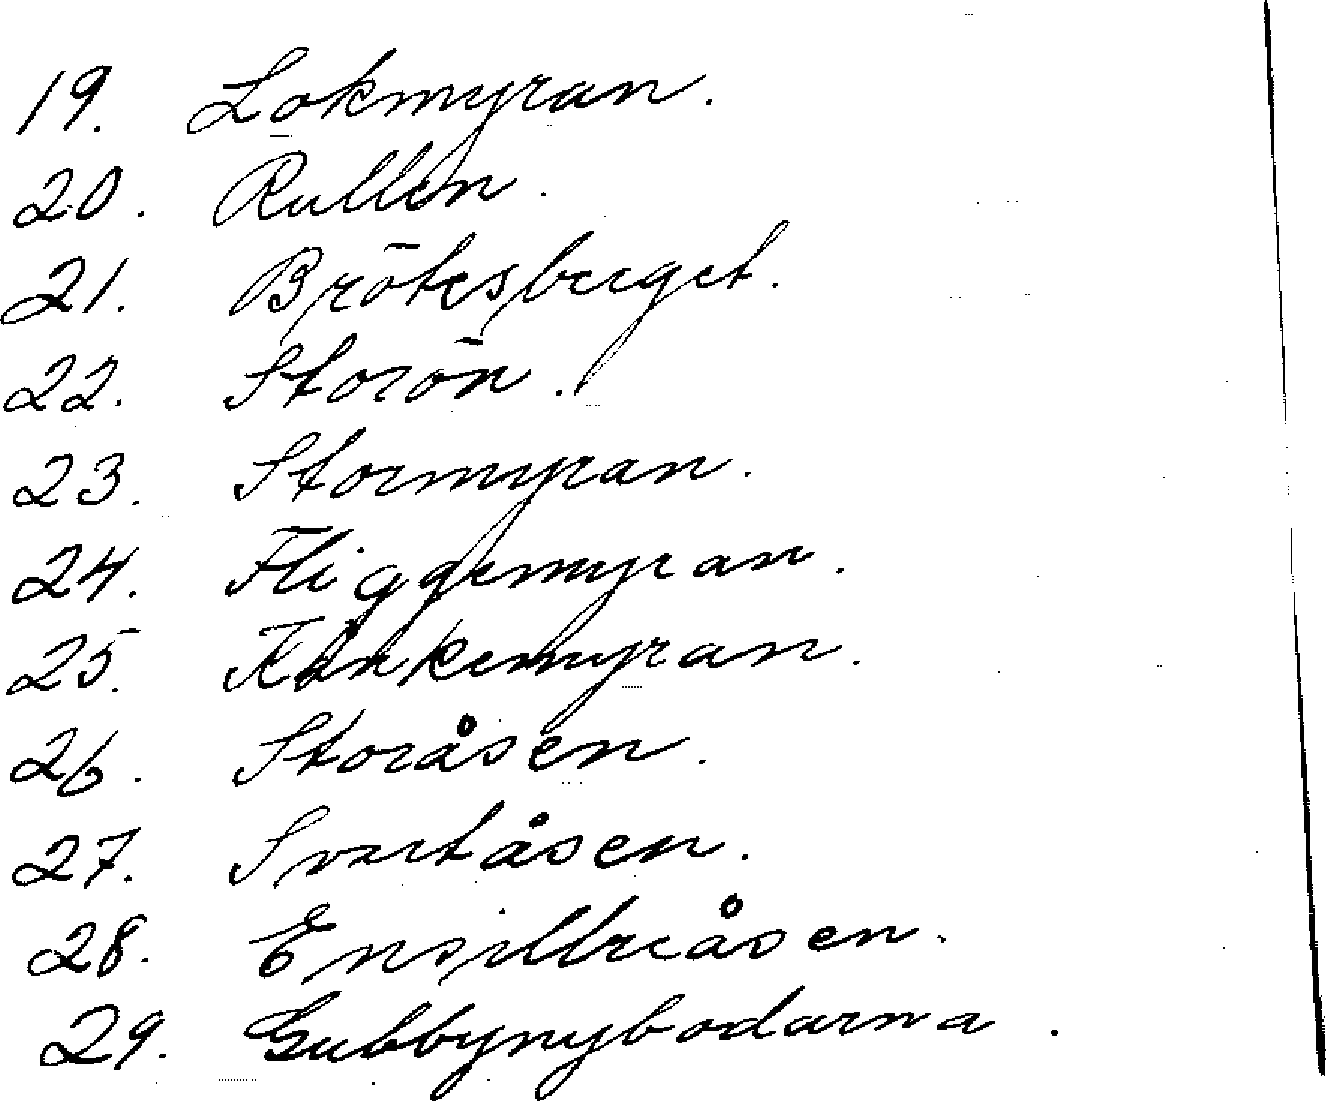 19. Lokmyran.
20. Rullen.
21. Brötesberget.
22. Storön.
23. Stormyran.
24. Fliggemyran.
25.
26. Storåsen.
27. Svartåsen.
28.
29. Gubbynybodarna.